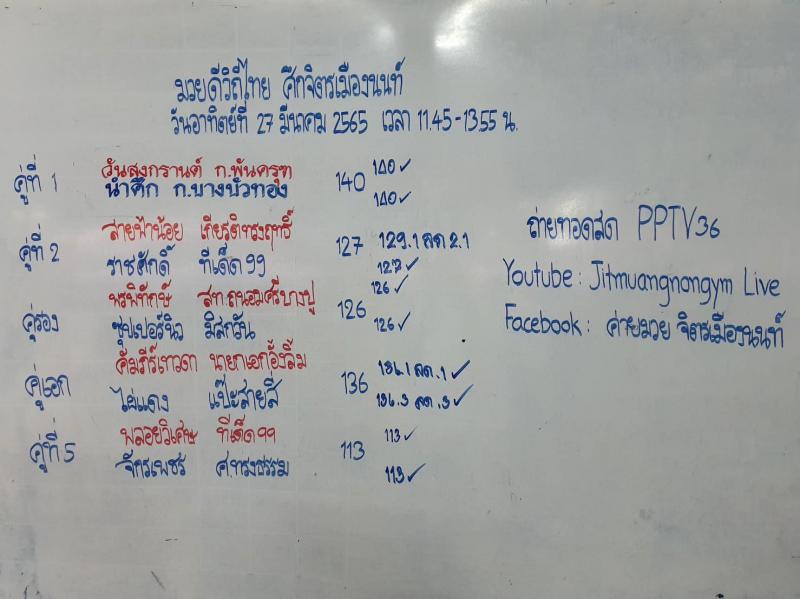 มวยดีวิถีไทย ศึกจิตรเมืองนนท์
วันอาทิตย์ที่ 27 มีนาคม 2565 เวลา 11.45-13.55 น.
คู่ที่ 1
วันสงกรานต์ ก.พันครุฑ
นำศึก ก.บางบัวทอง
140
140✓
140✓
คู่ที่ 2
สายฟ้าน้อย เกียรติทรงฤทธิ์
ราชศักดิ์ ทีเด็ด99
127
129.1 ลด 2.1
127✓
คู่รอง
พรพิทักษ์ สท.ถนอมศรีบางปู
ซุปเปอร์นิว มิสกวัน
126
126✓
126✓
คู่เอก
คัมภีร์เทวดา นายกเอกอั้งลิ้ม
ไผ่แดง แป๊ะสายสี่
136
136.1 ลด.1✓
136.3 ลด.3✓
คู่ที่ 5
พลอยวิเศษ ทีเด็ด99
จักรเพชร ศ.ทรงธรรม
113
113✓
113✓
ถ่ายทอดสด PPTV36
Youtube: Jitmuangnongym Live
Facebook: ค่ายมวย จิตรเมืองนนท์